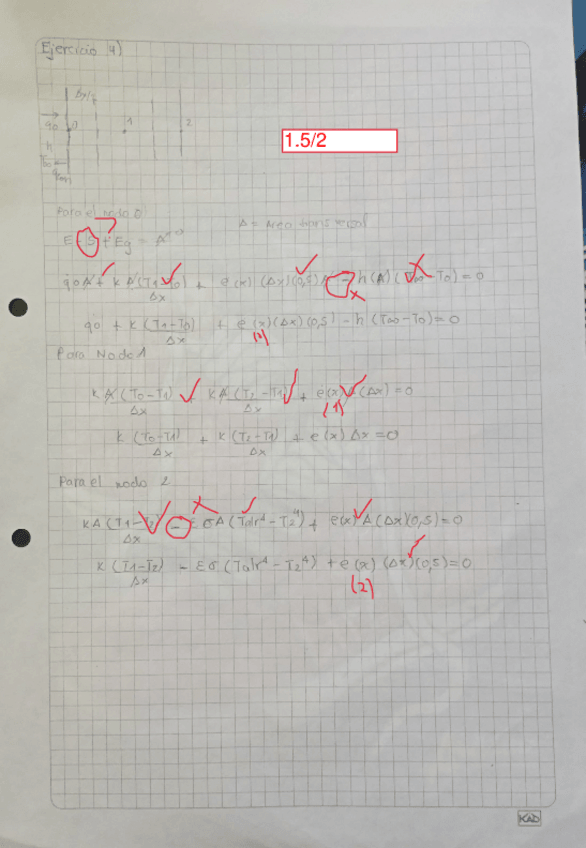 Ejercicio 4)
Δx/2
1.5/2
q̇0 0 1 2
h
T∞
Para el nodo 0 A = Area transversal
E - S + Eg = A
q̇0 A + k A (T1 - T0)/Δx + e(x) (Δx)(0,5) A - h(A) (T∞ - T0) = 0
q̇0 + k (T1 - T0)/Δx + e(x)(Δx)(0,5) - h (T∞ - T0) = 0
Para Nodo 1
k A (T0 - T1)/Δx + k A (T2 - T1)/Δx + e(x) A (Δx) = 0
(1)
k (T0 - T1)/Δx + k (T2 - T1)/Δx + e(x) Δx = 0
Para el nodo 2
k A (T1 - T2)/Δx - ε σ A (Talr⁴ - T2⁴) + e(x) A (Δx)(0,5) = 0
k (T1 - T2)/Δx - ε σ (Talr⁴ - T2⁴) + e(x) (Δx)(0,5) = 0
(2)
KAD